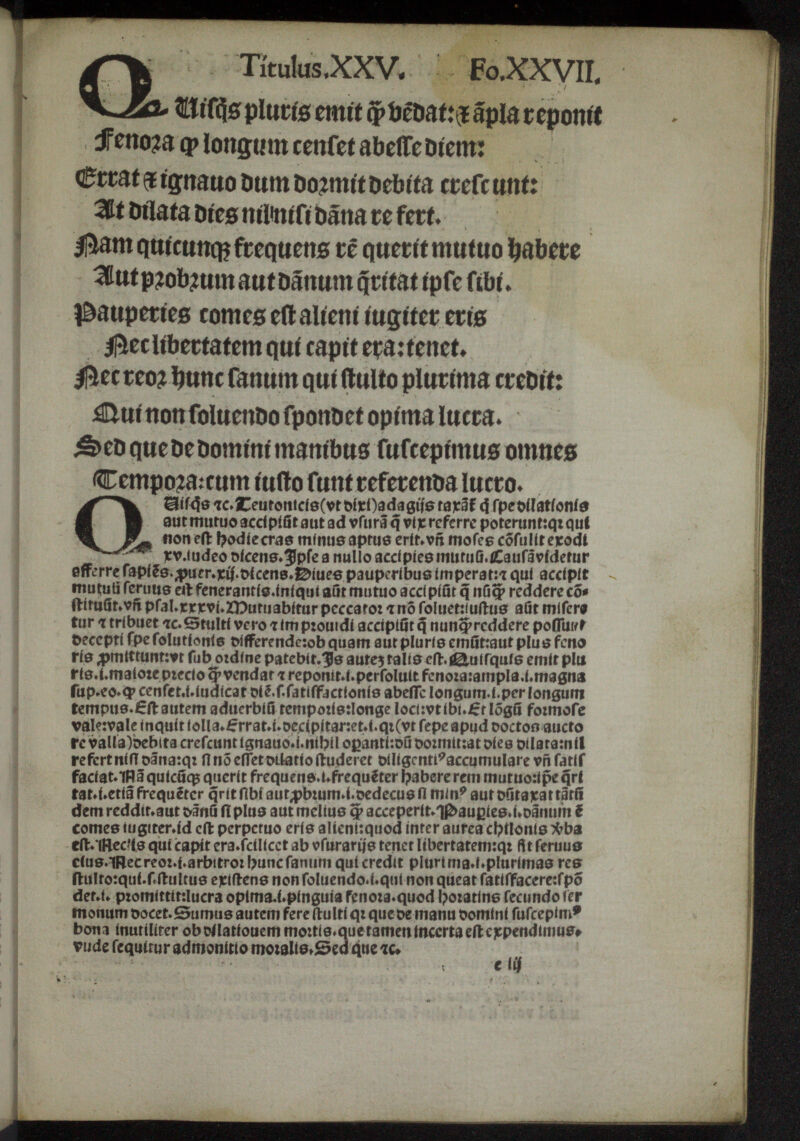 Titulus.XXV. Fo.XXVII.
QUisq̃s pluris emit q̃ꝫ vẽdat: ⁊ ãpla reponit
Fenora ꝙ longum censet abesse diem:
Errat ⁊ ignauo dum dormit debita crescunt:
At dilata dies nil nisi dãna re fert.
Nam quicunqꝫ frequens rẽ querit mutuo habere
Aut probrum aut dãnum q̃ritat ipse sibi.
Pauperies comes est alieni iugiter eris
Nec libertatem qui capit era: tenet.
Nec reor hunc sanum qui stulto plurima credit:
Qui non soluendo spondet opima lucra.
Sed que de domini manibus suscepimus omnes
Tempora: cum iusto sunt referenda lucro.
QUisq̃s ⁊c. Teutonicis (vt dixi) adagijs taxãt̃ q̃ spe dilationis
aut mutuo accipiũt aut ad vsurã q̃ vix referre poterunt: qꝛ qui
non est hodie cras minus aptus erit. vñ moses cõsulit exodi
xv. iudeo dicens. Ipse a nullo accipies mutuũ. Causã videtur
afferre sapiẽs. ꝓuer. xij. dicens. Diues pauperibus imperat: ⁊ qui accipit
mutuũ seruus est fenerantis. iniqui aũt mutuo accipiũt q̃ nũq̃ꝫ reddere cõ-
stituũt. vñ psal. xxxvi. Mutuabitur peccator ⁊ nõ soluet: iustus aũt misere
tur ⁊ tribuet ⁊c. Stulti vero ⁊ improuidi accipiũt q̃ nunq̃ꝫ reddere possunt
decepti spe solutionis differende: ob quam aut pluris emũt: aut plus feno
ris ꝓmittunt: vt sub ordine patebit. Is auteꝫ talis est. Quisquis emit plu
ris. i. maiore precio q̃ꝫ vendat ⁊ reponit. i. persoluit fenora: ampla. i. magna
sup. eo. ꝙ censet. i. iudicat diẽ. s. satisfactionis abesse longum. i. per longum
tempus. Est autem aduerbiũ temporis: longe loci: vt ibi. Et lõgũ formose
vale: vale inquit iolla. Errat. i. decipitar: et. i. qꝛ (vt sepe apud doctos aucto
re valla) debita crescunt ignauo. i. nihil opanti: dũ dormit: at dies dilata: nil
refert nisi dãna: qꝛ si nõ esset dilatio studeret diligentiꝰ accumulare vñ satis
faciat. Nã quicũqꝫ querit frequens. i. frequẽter habere rem mutuo: ip̃e q̃ri
tat. i. etiã frequẽter q̃rit sibi aut ꝓbrum. i. dedecus si minꝰ aut dũtaxat tãtũ
dem reddit. aut dãnũ si plus aut melius q̃ꝫ acceperit. Paupies. i. dãnum ẽ
comes iugiter. id est perpetuo eris alieni: quod inter aurea chilonis v̓ba
est. Nec is qui capit era. scilicet ab vsurarijs tenet libertatem: qꝛ fit seruus
eius. Nec reor. i. arbitror hunc sanum qui credit plurima. i. plurimas res
stulto: qui. s. stultus existens non soluendo. i. qui non queat satisfacere: spõ
det. i. promittit: lucra opima. i. pinguia fenora. quod horatius secundo ser
monum docet. Sumus autem fere stulti qꝛ que de manu domini suscepimꝰ
bona inutiliter ob dilationem mortis. que tamen incerta est expendimus.
vnde sequitur admonitio moralis. Sed que ⁊c.
e iij